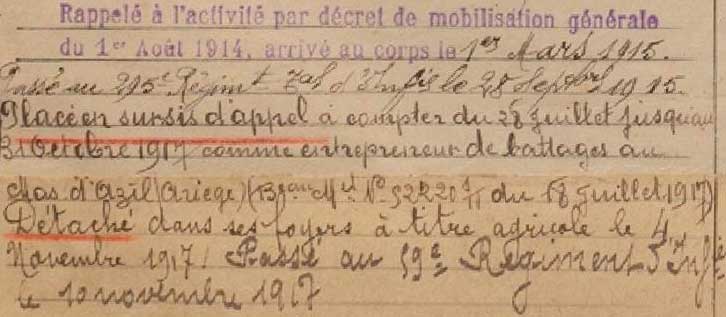 Rappelé à l'activité par décret de mobilisation générale
du 1er Août 1914, arrivé au corps le 1er Mars 1915.
Passé au 295e Régimt d'Infie le 28 Septbre 1915.
Placé en sursis d'appel à compter du 28 Juillet jusqu'au
31 Octobre 1917 comme entrepreneur de battages au
Mas d'Azil (Ariège) (du 18 Juillet 1917)
Détaché dans ses foyers à titre agricole le 4
Novembre 1917. Passé au 59e Régiment d'Infie
le 10 novembre 1917